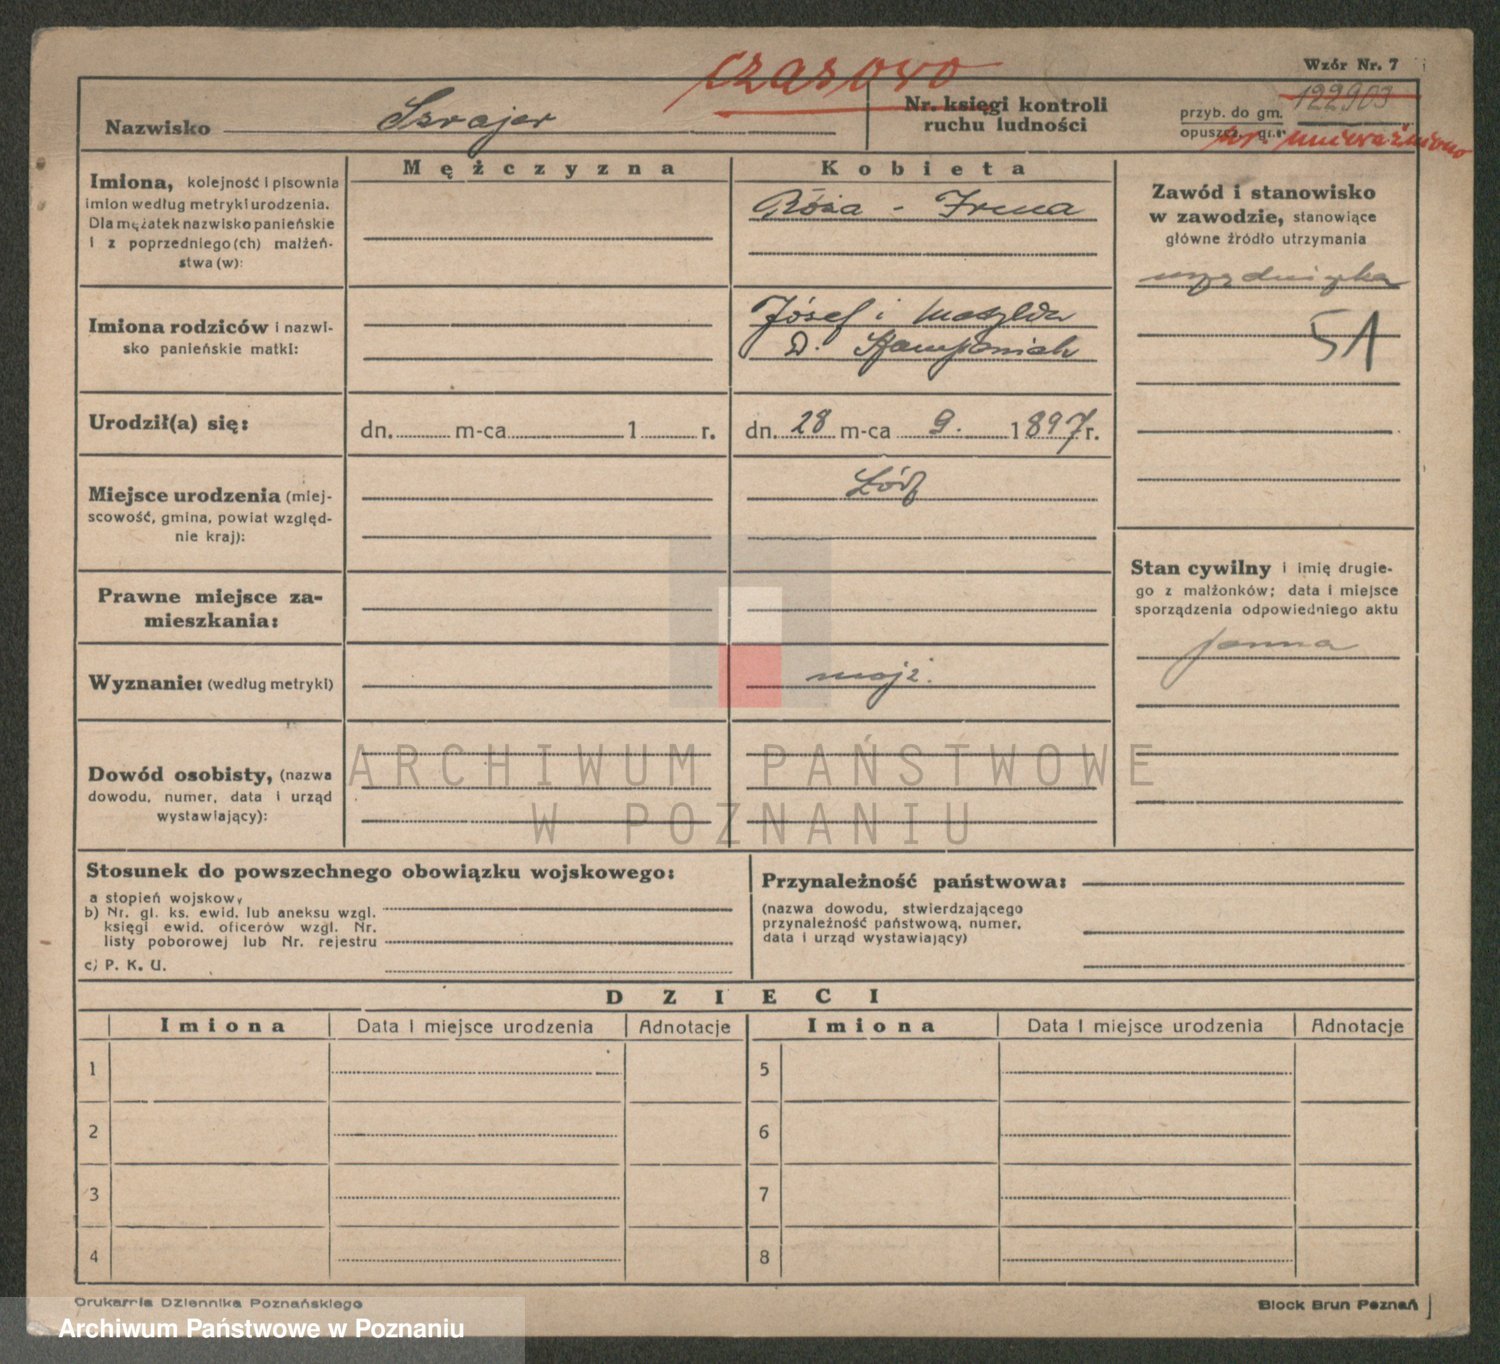 Wzór Nr. 7
czasowo
Nazwisko Szrajer
Nr. księgi kontroli
ruchu ludności
przyb. do gm. 122903
opuszcz. gm.
nr. unieważniono
Mężczyzna
Kobieta
Imiona, kolejność i pisownia
imion według metryki urodzenia.
Dla mężatek nazwisko panieńskie
i z poprzedniego (ch) małżeń-
stwa (w):
Róża - Irena
Imiona rodziców i nazwi-
sko panieńskie matki:
Józef i Matylda
D.
Urodził(a) się:
dn. m-ca 1 r.
dn. 28 m-ca 9. 1897 r.
Miejsce urodzenia (miej-
scowość, gmina, powiat względ-
nie kraj):
Łódź
Prawne miejsce za-
mieszkania:
Wyznanie: (według metryki)
mojż.
Dowód osobisty, (nazwa
dowodu, numer, data i urząd
wystawiający):
Zawód i stanowisko
w zawodzie, stanowiące
główne źródło utrzymania
urzędniczka
51
Stan cywilny i imię drugie-
go z małżonków; data i miejsce
sporządzenia odpowiedniego aktu
panna
Stosunek do powszechnego obowiązku wojskowego:
a stopień wojskowy
b) Nr. gl. ks. ewid. lub aneksu wzgl.
księgi ewid. oficerów wzgl. Nr.
listy poborowej lub Nr. rejestru
c) P. K. U.
Przynależność państwowa:
(nazwa dowodu, stwierdzającego
przynależność państwową, numer,
data i urząd wystawiający)
DZIECI
Imiona Data i miejsce urodzenia Adnotacje Imiona Data i miejsce urodzenia Adnotacje
1 5
2 6
3 7
4 8
Drukarnia Dziennika Poznańskiego
Block Brun Poznań
ARCHIWUM PAŃSTWOWE
W POZNANIU
Archiwum Państwowe w Poznaniu